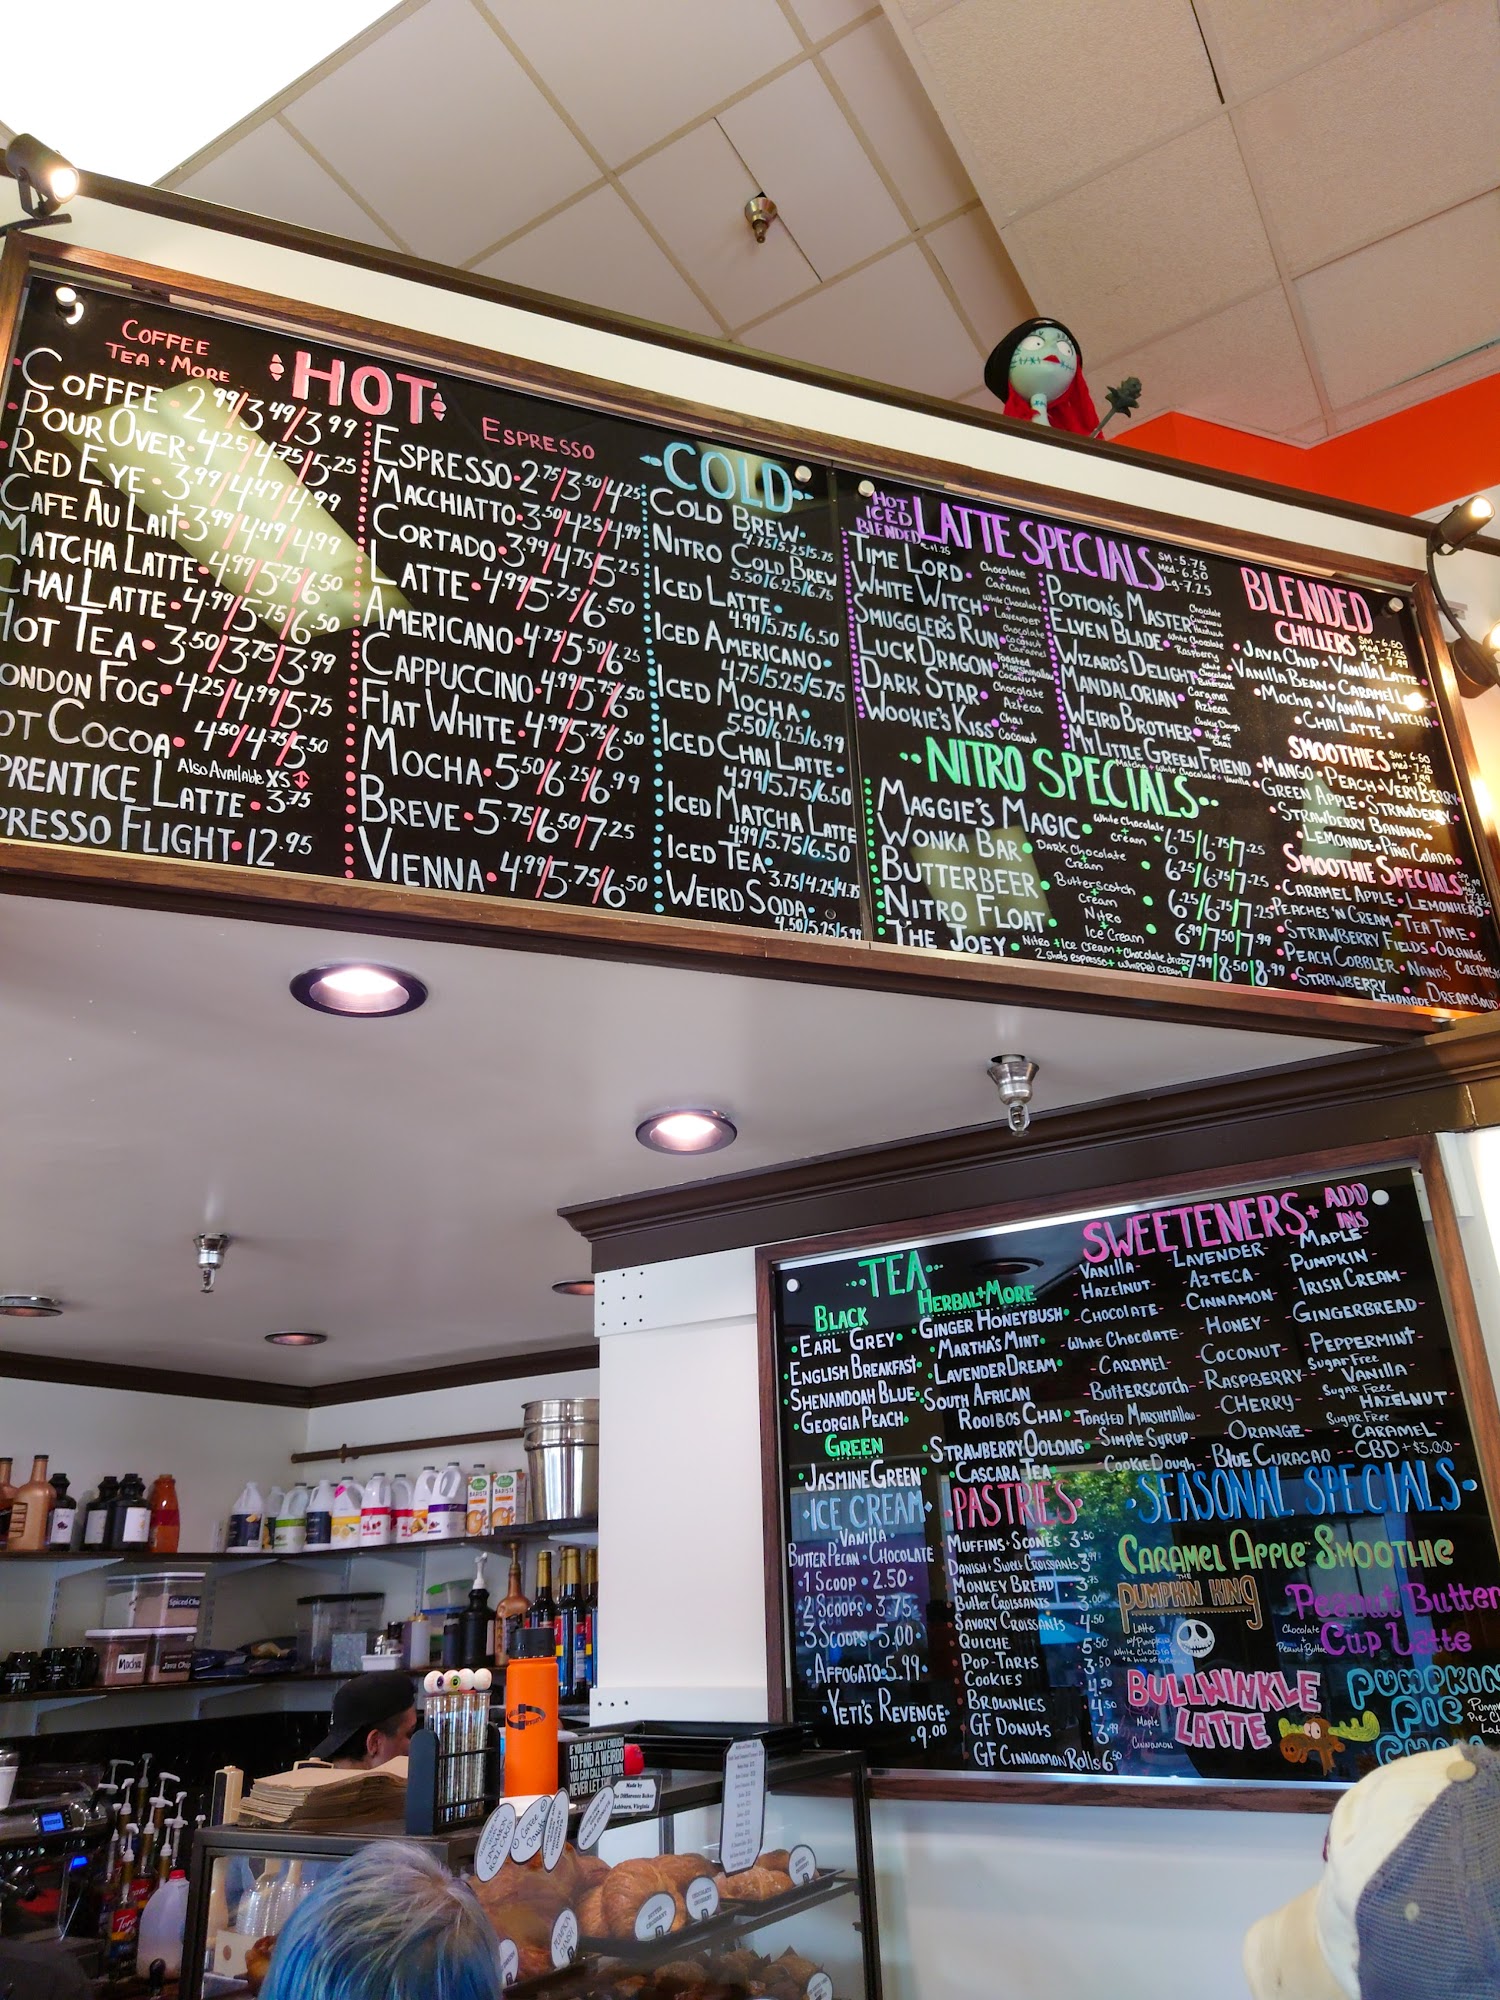 COFFEE
TEA + MORE
HOT
COFFEE • 2.99/3.49/3.99
POUR OVER • 4.25/4.75/5.25
RED EYE • 3.99/4.49/4.99
CAFE AU LAIT • 3.99/4.49/4.99
MATCHA LATTE • 4.99/5.75/6.50
CHAI LATTE • 4.99/5.75/6.50
HOT TEA • 3.50/3.75/3.99
ONDON FOG • 4.25/4.99/5.75
OT COCOA • 4.50/4.75/5.50
ALSO AVAILABLE XS
PRENTICE LATTE • 3.75
PRESSO FLIGHT • 12.95
ESPRESSO
ESPRESSO • 2.75/3.50/4.25
MACCHIATTO • 3.50/4.25/4.99
CORTADO • 3.99/4.75/5.25
LATTE • 4.99/5.75/6.50
AMERICANO • 4.75/5.50/6.25
CAPPUCCINO • 4.99/5.75/6.50
FLAT WHITE • 4.99/5.75/6.50
MOCHA • 5.50/6.25/6.99
BREVE • 5.75/6.50/7.25
VIENNA • 4.99/5.75/6.50
COLD
COLD BREW •
4.75/5.25/5.75
NITRO COLD BREW
5.50/6.25/6.75
ICED LATTE •
4.99/5.75/6.50
ICED AMERICANO •
4.75/5.25/5.75
ICED MOCHA •
5.50/6.25/6.99
ICED CHAI LATTE •
4.99/5.75/6.50
ICED MATCHA LATTE
4.99/5.75/6.50
ICED TEA • 3.75/4.25/4.75
WEIRD SODA •
4.50/5.25/5.99
HOT
ICED
BLENDED
LATTE SPECIALS
SM - 5.75
MED - 6.50
LG - 7.25
TIME LORD • Chocolate + Caramel
WHITE WITCH • White Chocolate + Lavender
SMUGGLER'S RUN • Chocolate Coconut Caramel
LUCK DRAGON • Toasted Marshmallow Coconut
DARK STAR • Chocolate Azteca
WOOKIE'S KISS • Chai + Coconut
POTION'S MASTER Chocolate Cinnamon Hazelnut
ELVEN BLADE • White Chocolate Raspberry
WIZARD'S DELIGHT • White Chocolate Butterscotch
MANDALORIAN • Caramel Azteca
WEIRD BROTHER • Cookie Dough Hint of Chai
MY LITTLE GREEN FRIEND
Matcha + White Chocolate + Vanilla
NITRO SPECIALS
MAGGIE'S MAGIC • White Chocolate + Cream • 6.25/6.75/7.25
WONKA BAR • Dark Chocolate Cream • 6.25/6.75/7.25
BUTTERBEER • Butterscotch + Cream • 6.25/6.75/7.25
NITRO FLOAT • Nitro + Ice Cream • 6.99/7.50/7.99
THE JOEY • Nitro + Ice Cream + Chocolate drizzle
2 shots espresso + whipped cream • 7.99/8.50/8.99
BLENDED
CHILLERS
SM - 6.50
MED - 7.25
LG - 7.99
• JAVA CHIP • VANILLA LATTE •
VANILLA BEAN • CARAMEL
MOCHA • VANILLA MATCHA
• CHAI LATTE •
SMOOTHIES
• MANGO • PEACH • VERY BERRY
GREEN APPLE • STRAWBERRY
• STRAWBERRY BANANA •
• LEMONADE • PIÑA COLADA •
SMOOTHIE SPECIALS
• CARAMEL APPLE • LEMONHEAD
PEACHES 'N CREAM • TEA TIME •
• STRAWBERRY FIELDS • ORANGE
• PEACH COBBLER • NANA'S CREAMSI
• STRAWBERRY LEMONADE • DREAMCLOUD
TEA
BLACK
• EARL GREY •
ENGLISH BREAKFAST
SHENANDOAH BLUE •
• GEORGIA PEACH •
GREEN
• JASMINE GREEN
HERBAL + MORE
GINGER HONEYBUSH •
MARTHA'S MINT •
LAVENDER DREAM •
SOUTH AFRICAN
ROOIBOS CHAI •
STRAWBERRY OOLONG
CASCARA TEA
SWEETENERS + ADD INS
VANILLA - LAVENDER - MAPLE
HAZELNUT - AZTECA - PUMPKIN
CHOCOLATE - CINNAMON - IRISH CREAM
WHITE CHOCOLATE - HONEY - GINGERBREAD
CARAMEL - COCONUT - PEPPERMINT
BUTTERSCOTCH - RASPBERRY - SUGAR FREE VANILLA
TOASTED MARSHMALLOW - CHERRY - SUGAR FREE HAZELNUT
SIMPLE SYRUP - ORANGE - SUGAR FREE CARAMEL
COOKIE DOUGH - BLUE CURACAO - CBD + $3.00
ICE CREAM
VANILLA
BUTTER PECAN • CHOCOLATE
• 1 SCOOP • 2.50 •
2 SCOOPS • 3.75
3 SCOOPS • 5.00 •
AFFOGATO • 5.99
YETI'S REVENGE
9.00
PASTRIES
MUFFINS + SCONES • 3.50
DANISH + SWEET CROISSANTS • 3.99
MONKEY BREAD • 3.75
BUTTER CROISSANTS • 3.00
SAVORY CROISSANTS • 4.50
QUICHE • 5.50
POP-TARTS • 3.50
COOKIES • 4.50
BROWNIES • 4.50
GF DONUTS • 3.99
GF CINNAMON ROLLS 6.50
SEASONAL SPECIALS
CARAMEL APPLE SMOOTHIE
THE
PUMPKIN KING
Latte
w/ Pumpkin
White Chocolate
Peanut Butter
Cup Latte
Chocolate
+
Peanut Butter
BULLWINKLE
LATTE
Maple
+
Cinnamon
PUMPKIN
PIE
CHAI
Spiced Cha
Mocha
Java Chip
IF YOU ARE LUCKY ENOUGH
TO FIND A WEIRDO
NEVER LET
Made by
Ashburn, Virginia
CINNAMON
ROLL CAKES
Coffee
Donuts
BUTTER
CROISSANT
CHOCOLATE
CROISSANT
PUMPKIN